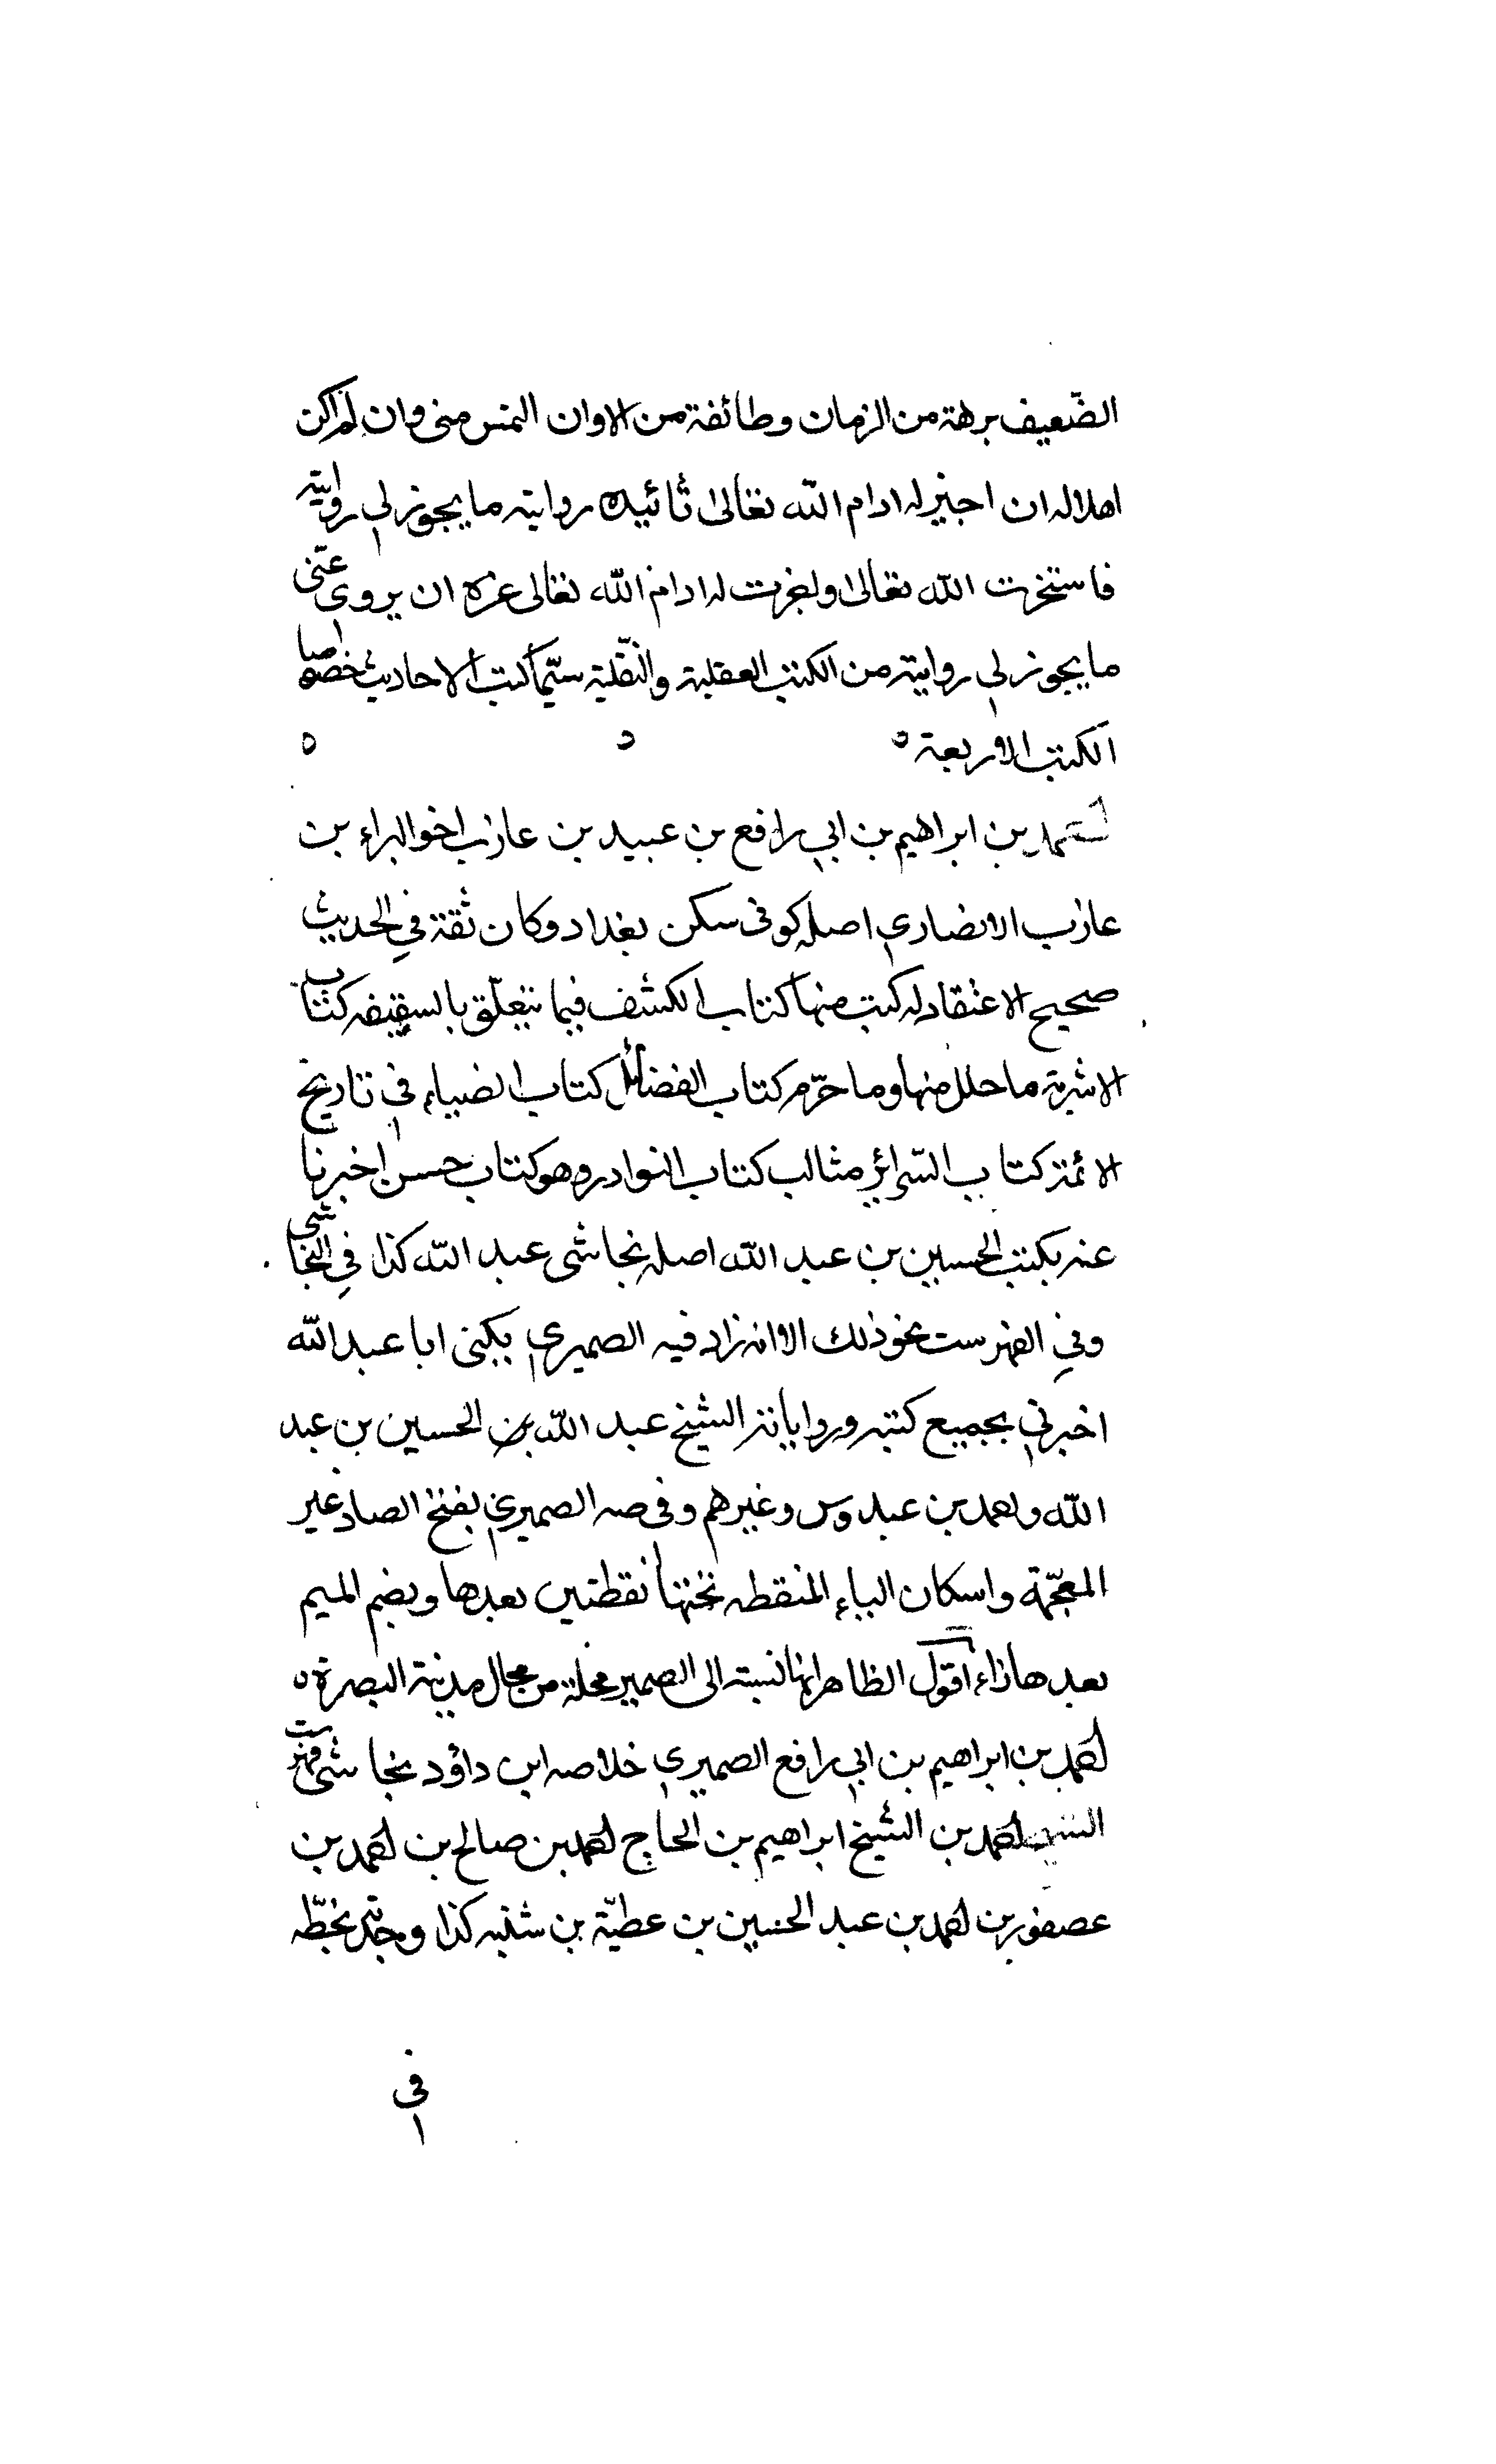 الضّعيف برهة من الزمان وطائفة من الاوان التمس منى وان لم اكن
اهلا له ان اجيز له ادام الله تعالى تائيده رواية ما يجوز لي روايته
فاستخرت الله تعالى واجزت له ادام الله تعالى عزه ان يروى عنّى
ما يجوز لي روايته من الكتب العقلية والنقّلية سيّما كتب الاحاديث خصوصا
الكتب الاربعة ه ه ه
احمد بن ابراهيم بن ابي رافع بن عبيد بن عازب اخو البراء بن
عازب الانصاري اصله كوفى سكن بغداد وكان ثقة في الحديث
صحيح الاعتقاد له كتب منها كتاب الكشف فيما يتعلّق بالسقيفه كتاب
الاشربة ما حلل منها وما حرّم كتاب الفضائل كتاب الضياء في تاريخ
الائمة كتاب السّرائر مثالب كتاب النوادر وهو كتاب حسن اخبرنا
عنه بكتبه الحسين بن عبد الله اصله نجاشى عبد الله كذا في النجاشى
وفي الفهرست نحو ذلك الا انه زاد فيه الصميري يكنى ابا عبد الله
اخبرني بجميع كتبه ورواياته الشيخ عبد الله بن الحسين بن عبد
الله واحمد بن عبدوس وغيرهم وفى صه الصميري بفتح الصاد غير
المعجّمة واسكان الياء المنقطه تحتها نقطتين بعدها وبضم الميم
بعدها زاء اقول الظاهر انها نسبته الى الصمير محلة من محال مدينة البصرة ه
احمد بن ابراهيم بن ابي رافع الصميري خلاصه ابن داؤد نجاشى فهرست
الشيخ احمد بن الشيخ ابراهيم بن الحاج احمد بن صالح بن احمد بن
عصفور بن احمد بن عبد الحسين بن عطيّة بن شنبه كذا وجدّته بخطّه
في